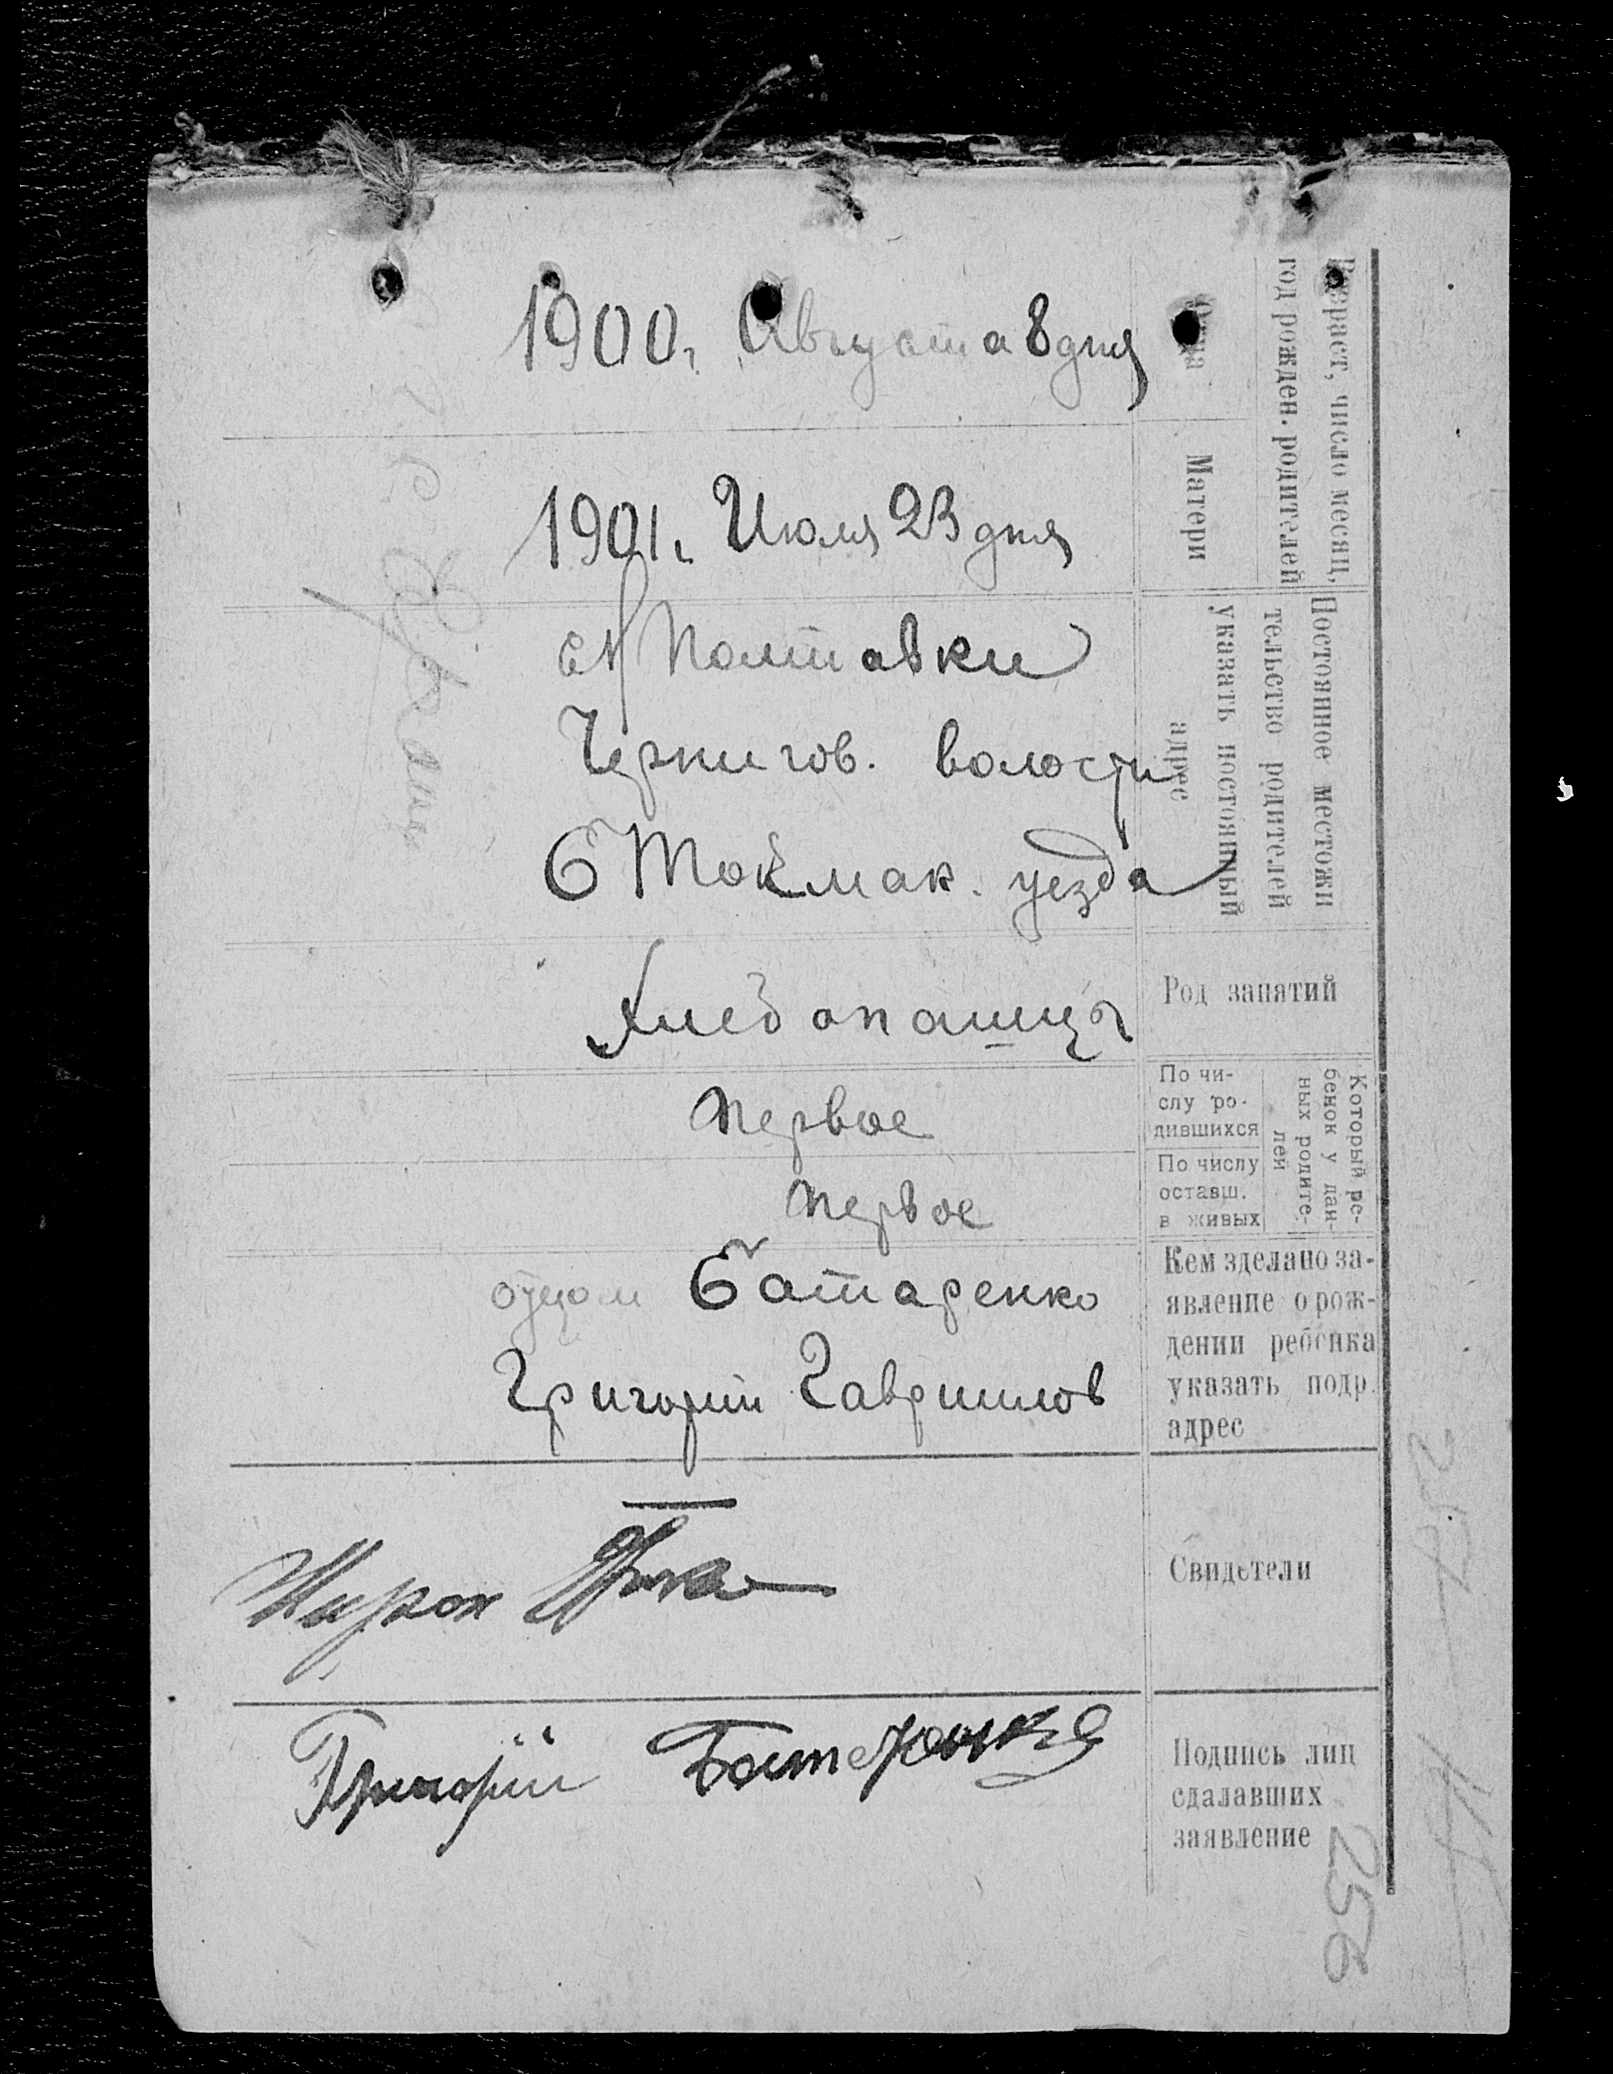 Возраст, число месяц,
год рожден. родителей
Отца
1900 г. Августа 8 дня
Матери
1901 г. Июля 23 дня
Постоянное местожи
тельство родителей
указать постоянный
адрес
с. Н Полтавки
Чернигов. волости
Б Токмак. уезда
Род занятий
Хлебопашцы
Который ре-
бенок у дан-
ных родите-
лей
По чи-
слу ро-
дившихся
Первое
По числу
оставш.
в живых
Первое
Кем зделано за-
явление о рож-
дении ребенка
указать подр.
адрес
отцом Батаренко
Григорий Гаврилов
Свидетели
Подпись лиц
сдалавших
заявление
Григорій
256